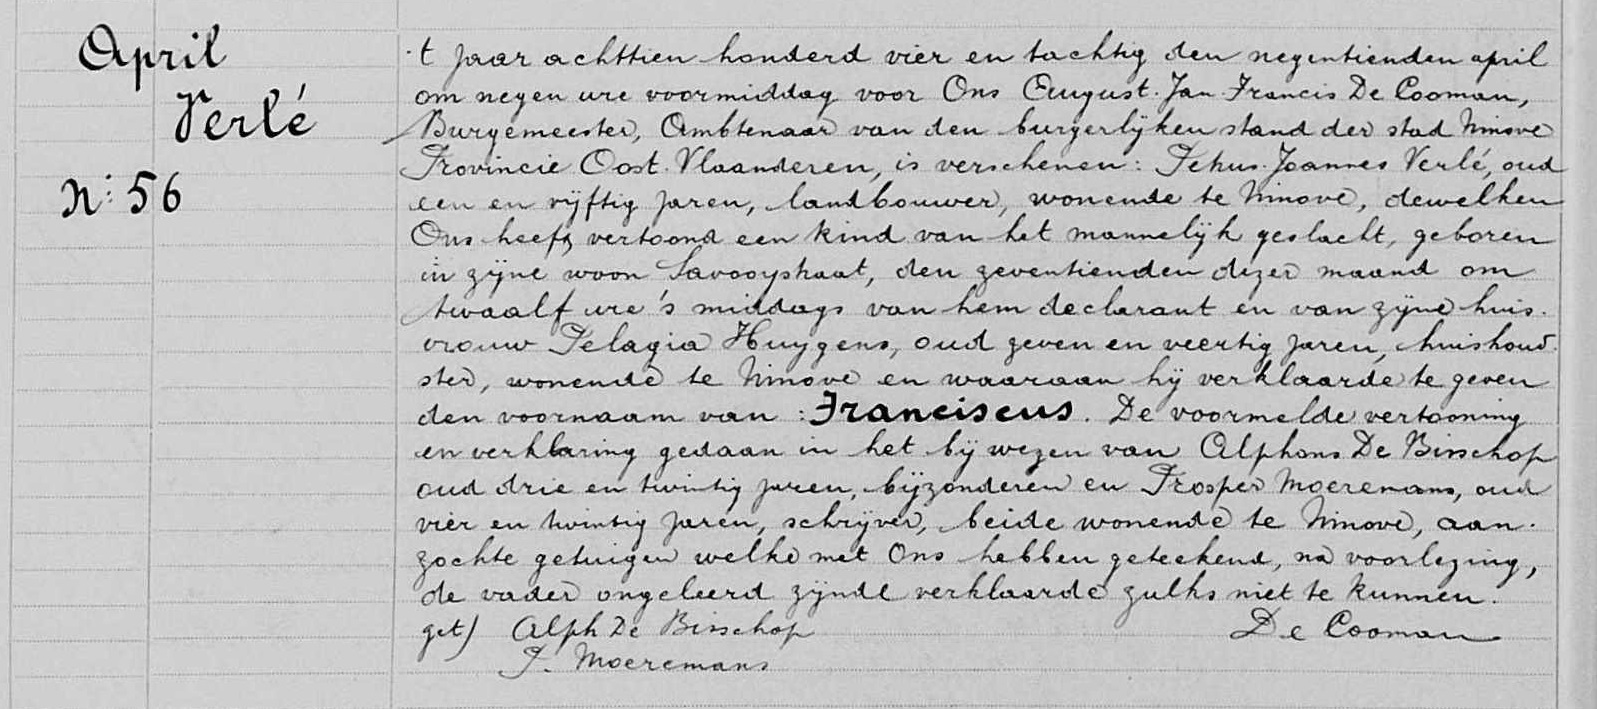 April
Verlé
N: 56
't jaar achttien honderd vier en tachtig den negentienden april
om negen ure voormiddag voor Ons August. Jan Francis De Cooman,
Burgemeester, Ambtenaar van den burgerlijken stand der stad Ninove
Provincie Oost. Vlaanderen, is verschenen: Petrus. Joannes Verlé, oud
een en vijftig jaren, landbouwer, wonende te Ninove, dewelken
Ons heeft vertoond een kind van het mannelijk geslacht, geboren
in zijne woon Savooystraat, den zeventienden dezer maand om
twaalf ure 's middags van hem declarant en van zijne huis.
vrouw Pelagia Huygens, oud zeven en veertig jaren, huishoud.
ster, wonende te Ninove en waaraan hij verklaarde te geven
den voornaam van : Franciscus. De voormelde vertooning
en verklaring gedaan in het bij wezen van Alphons De Bisschop
oud drie en twintig jaren, bijzonderen en Prosper Moeremans, oud
vier en twintig jaren, schrijver, beide wonende te Ninove, aan.
zochte getuigen welke met Ons hebben geteekend, na voorlezing,
de vader ongeleerd zijnde verklaarde zulks niet te kunnen.
get) Alph De Bisschop De Cooman
P. Moeremans